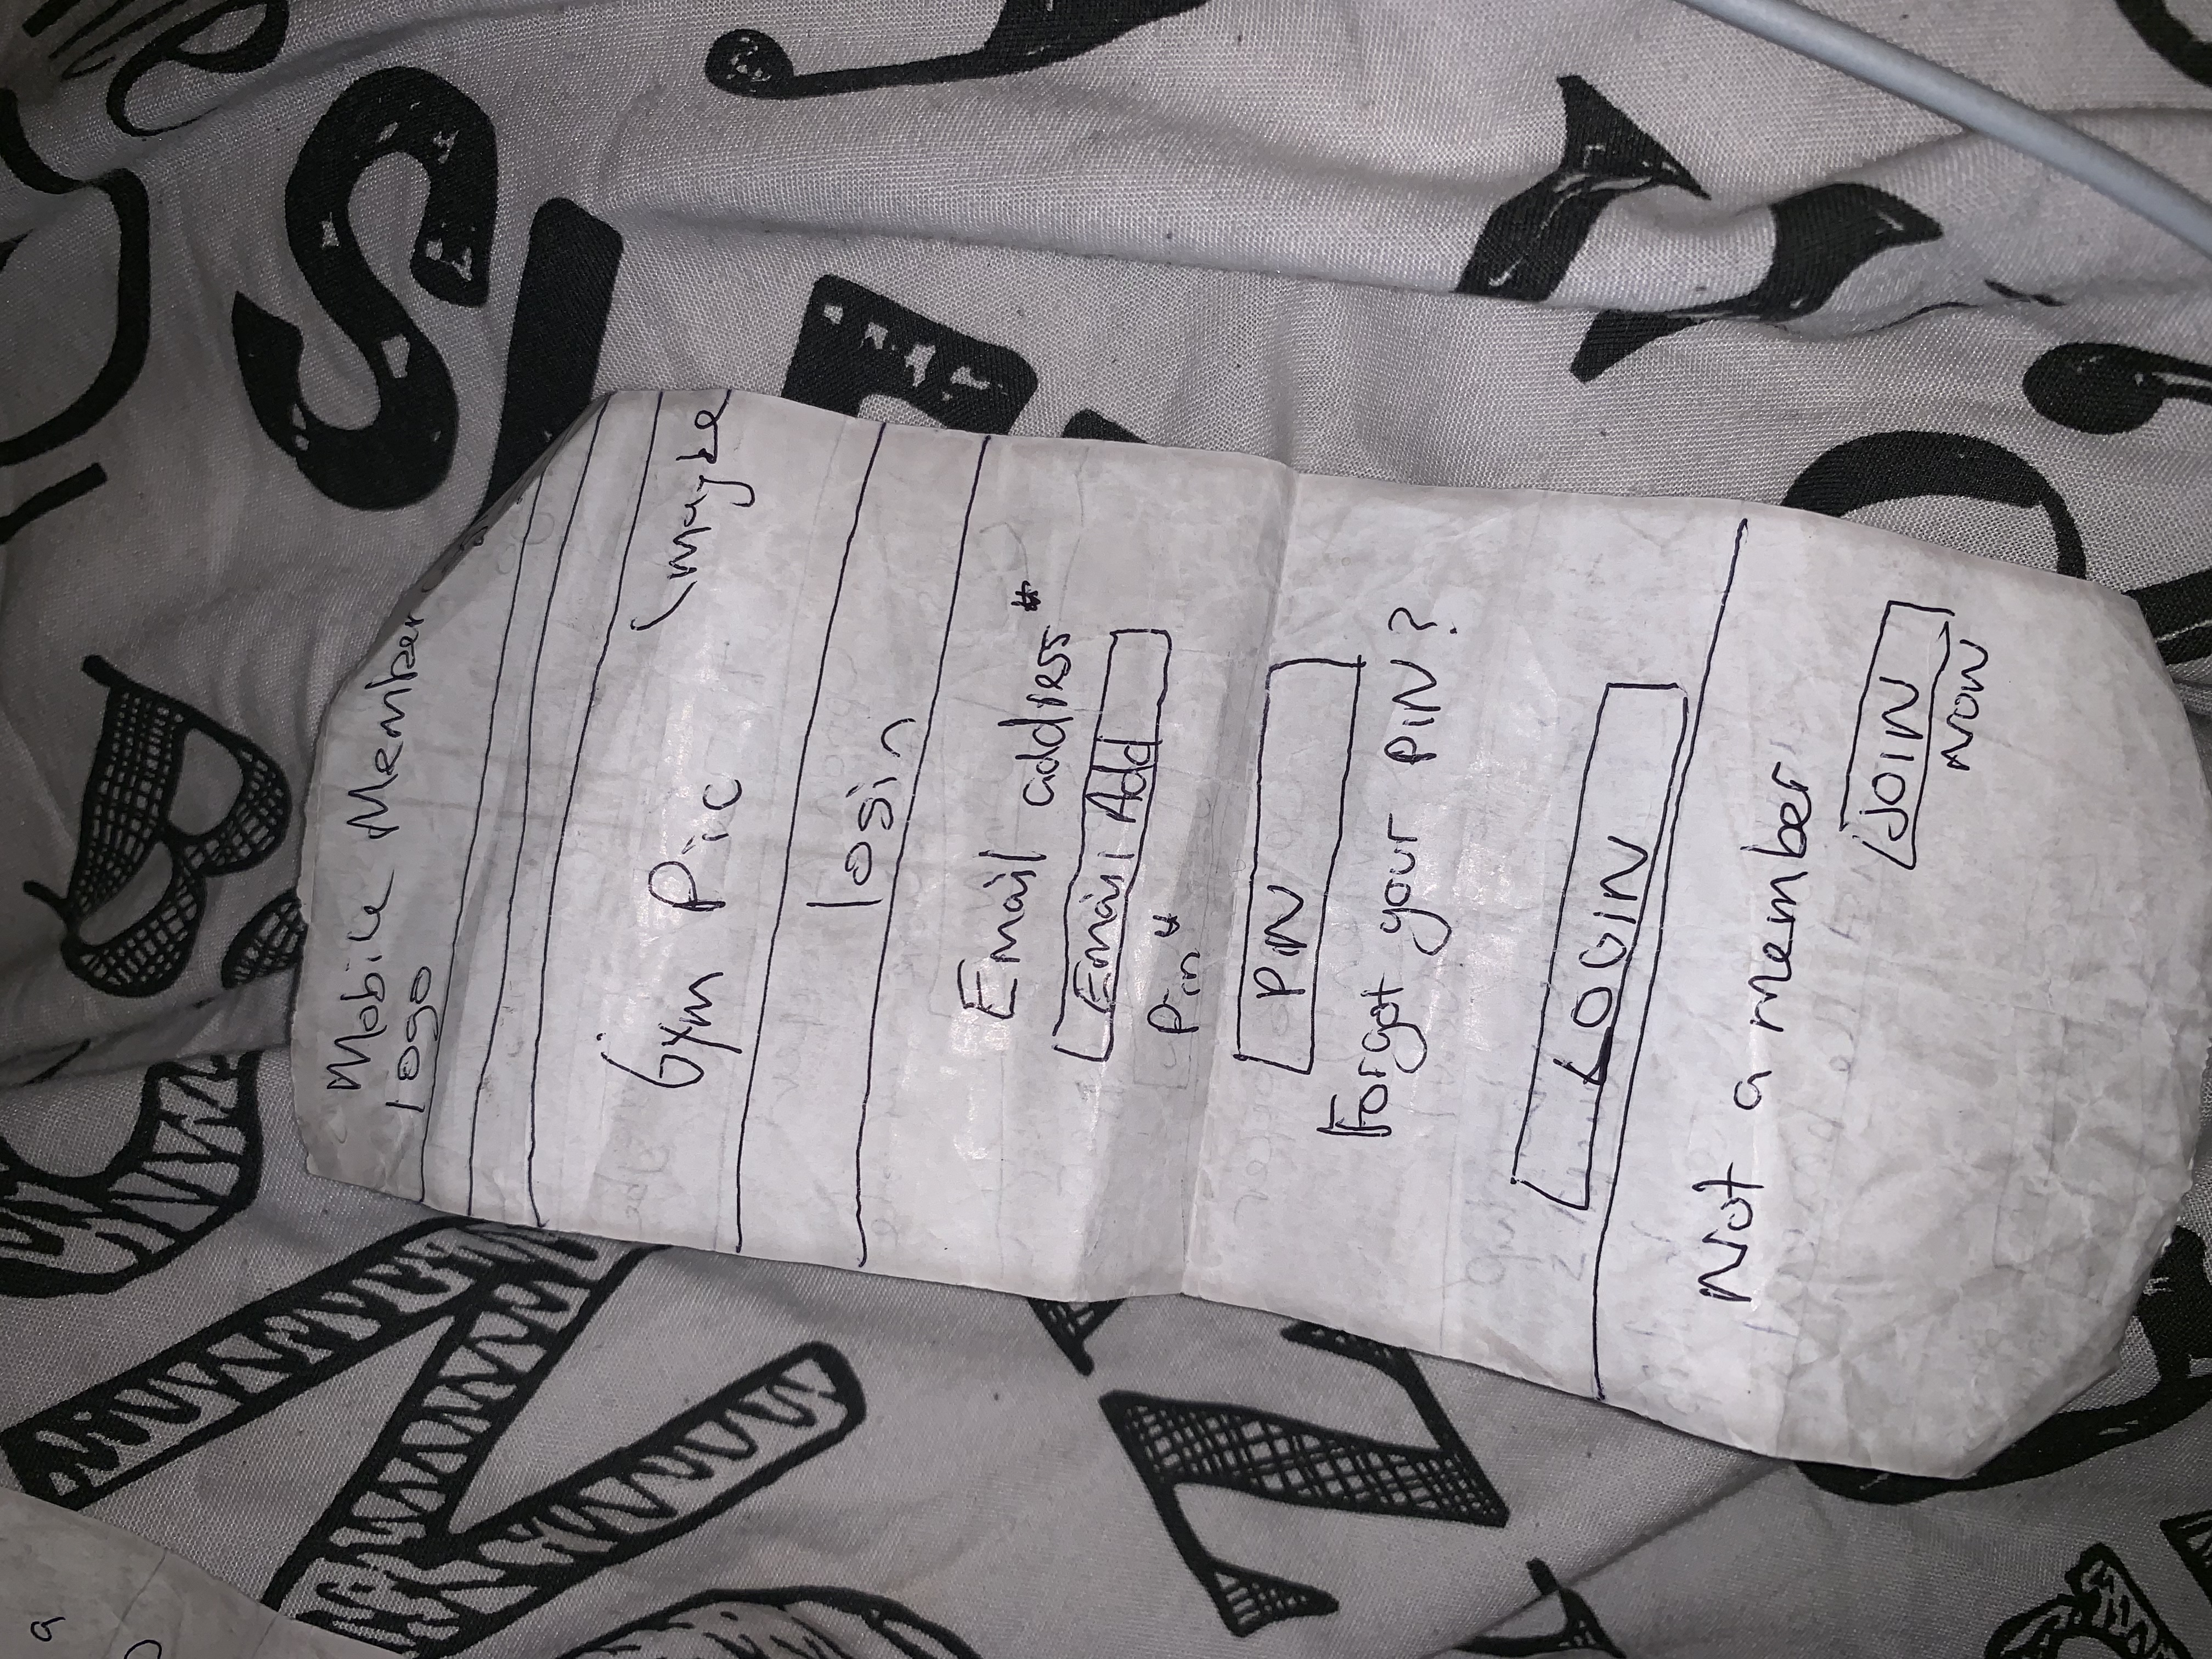 Mobile Member
logo
Gym Pic (maybe
login
Email address*
Email Add
Pin*
PiN
Forgot your PiN?
LOGiN
Not a member
JOIN
NOW